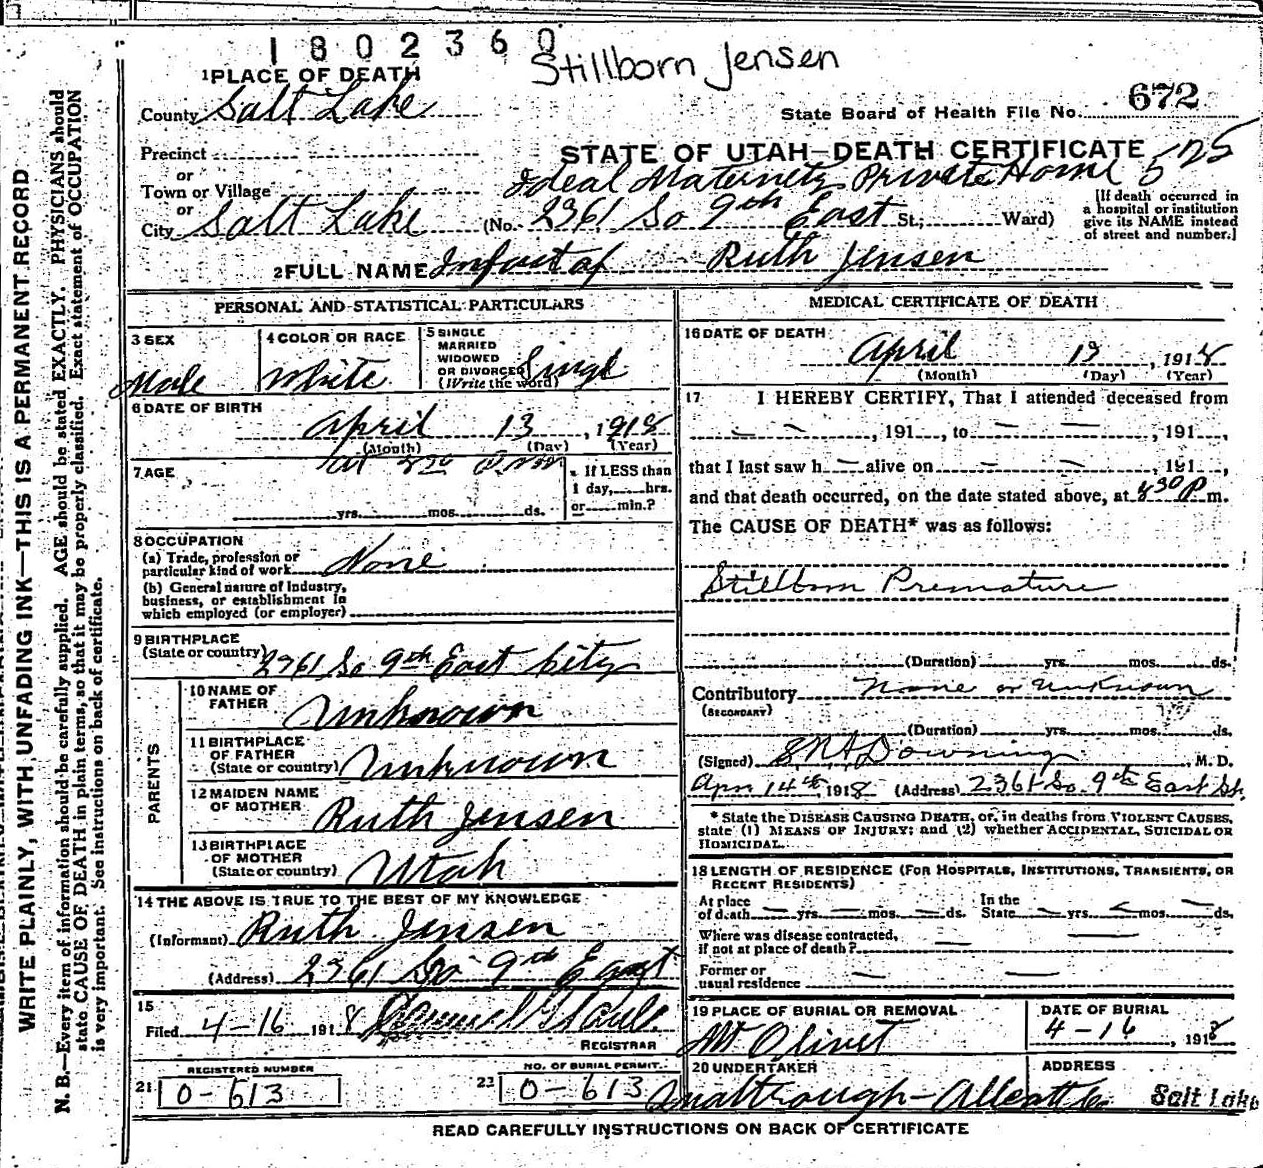 1802360
Stillborn Jensen
1 PLACE OF DEATH
County Salt Lake
State Board of Health File No. 672
Precinct
or
STATE OF UTAH—DEATH CERTIFICATE
525
Town or Village
Ideal Maternity Private Home
or
City Salt Lake (No. 2361 So 9th East St; Ward)
[If death occurred in
a hospital or institution
give its NAME instead
of street and number.]
2 FULL NAME Infant of Ruth Jensen
PERSONAL AND STATISTICAL PARTICULARS
3 SEX
Male
4 COLOR OR RACE
White
5 SINGLE
MARRIED
WIDOWED
OR DIVORCED
(Write the word)
Singl
6 DATE OF BIRTH
April 13, 1918
(Month) (Day) (Year)
7 AGE
at 8 30
yrs. mos. ds.
If LESS than
1 day, hrs.
or min.?
8 OCCUPATION
(a) Trade, profession or
particular kind of work None
(b) General nature of Industry,
business, or establishment in
which employed (or employer)
9 BIRTHPLACE
(State or country) 2361 So 9th East City
PARENTS
10 NAME OF
FATHER Unknown
11 BIRTHPLACE
OF FATHER
(State or country) Unknown
12 MAIDEN NAME
OF MOTHER Ruth Jensen
13 BIRTHPLACE
OF MOTHER
(State or country) Utah
14 THE ABOVE IS TRUE TO THE BEST OF MY KNOWLEDGE
(Informant) Ruth Jensen
(Address) 2361 So 9th East
15
Filed 4-16 1918
REGISTRAR
REGISTERED NUMBER
21 0-613
NO. OF BURIAL PERMIT.
22 0-613
MEDICAL CERTIFICATE OF DEATH
16 DATE OF DEATH
April 13, 1918
(Month) (Day) (Year)
17 I HEREBY CERTIFY, That I attended deceased from
— —, 191 , to — —, 191 ,
that I last saw h — alive on — —, 191 ,
and that death occurred, on the date stated above, at 8 30 P. m.
The CAUSE OF DEATH* was as follows:
Stillborn Premature
(Duration) yrs. mos. ds.
Contributory None or Unknown
(SECONDARY)
(Duration) yrs. mos. ds.
(Signed) Downing, M. D.
Apr 14th, 1918 (Address) 2361 So. 9th East St.
* State the DISEASE CAUSING DEATH, or, in deaths from VIOLENT CAUSES,
state (1) MEANS OF INJURY; and (2) whether ACCIDENTAL, SUICIDAL OR
HOMICIDAL.
18 LENGTH OF RESIDENCE (FOR HOSPITALS, INSTITUTIONS, TRANSIENTS, OR
RECENT RESIDENTS)
At place
of death — yrs. — mos. — ds.
In the
State — yrs. — mos. — ds.
Where was disease contracted,
if not at place of death?
Former or
usual residence
19 PLACE OF BURIAL OR REMOVAL
Mt Olivet
DATE OF BURIAL
4-16, 1918
20 UNDERTAKER
ADDRESS
Salt Lake
READ CAREFULLY INSTRUCTIONS ON BACK OF CERTIFICATE
WRITE PLAINLY, WITH UNFADING INK—THIS IS A PERMANENT RECORD
N. B.—Every item of information should be carefully supplied. AGE should be stated EXACTLY. PHYSICIANS should
state CAUSE OF DEATH in plain terms, so that it may be properly classified. Exact statement of OCCUPATION
is very important. See instructions on back of certificate.